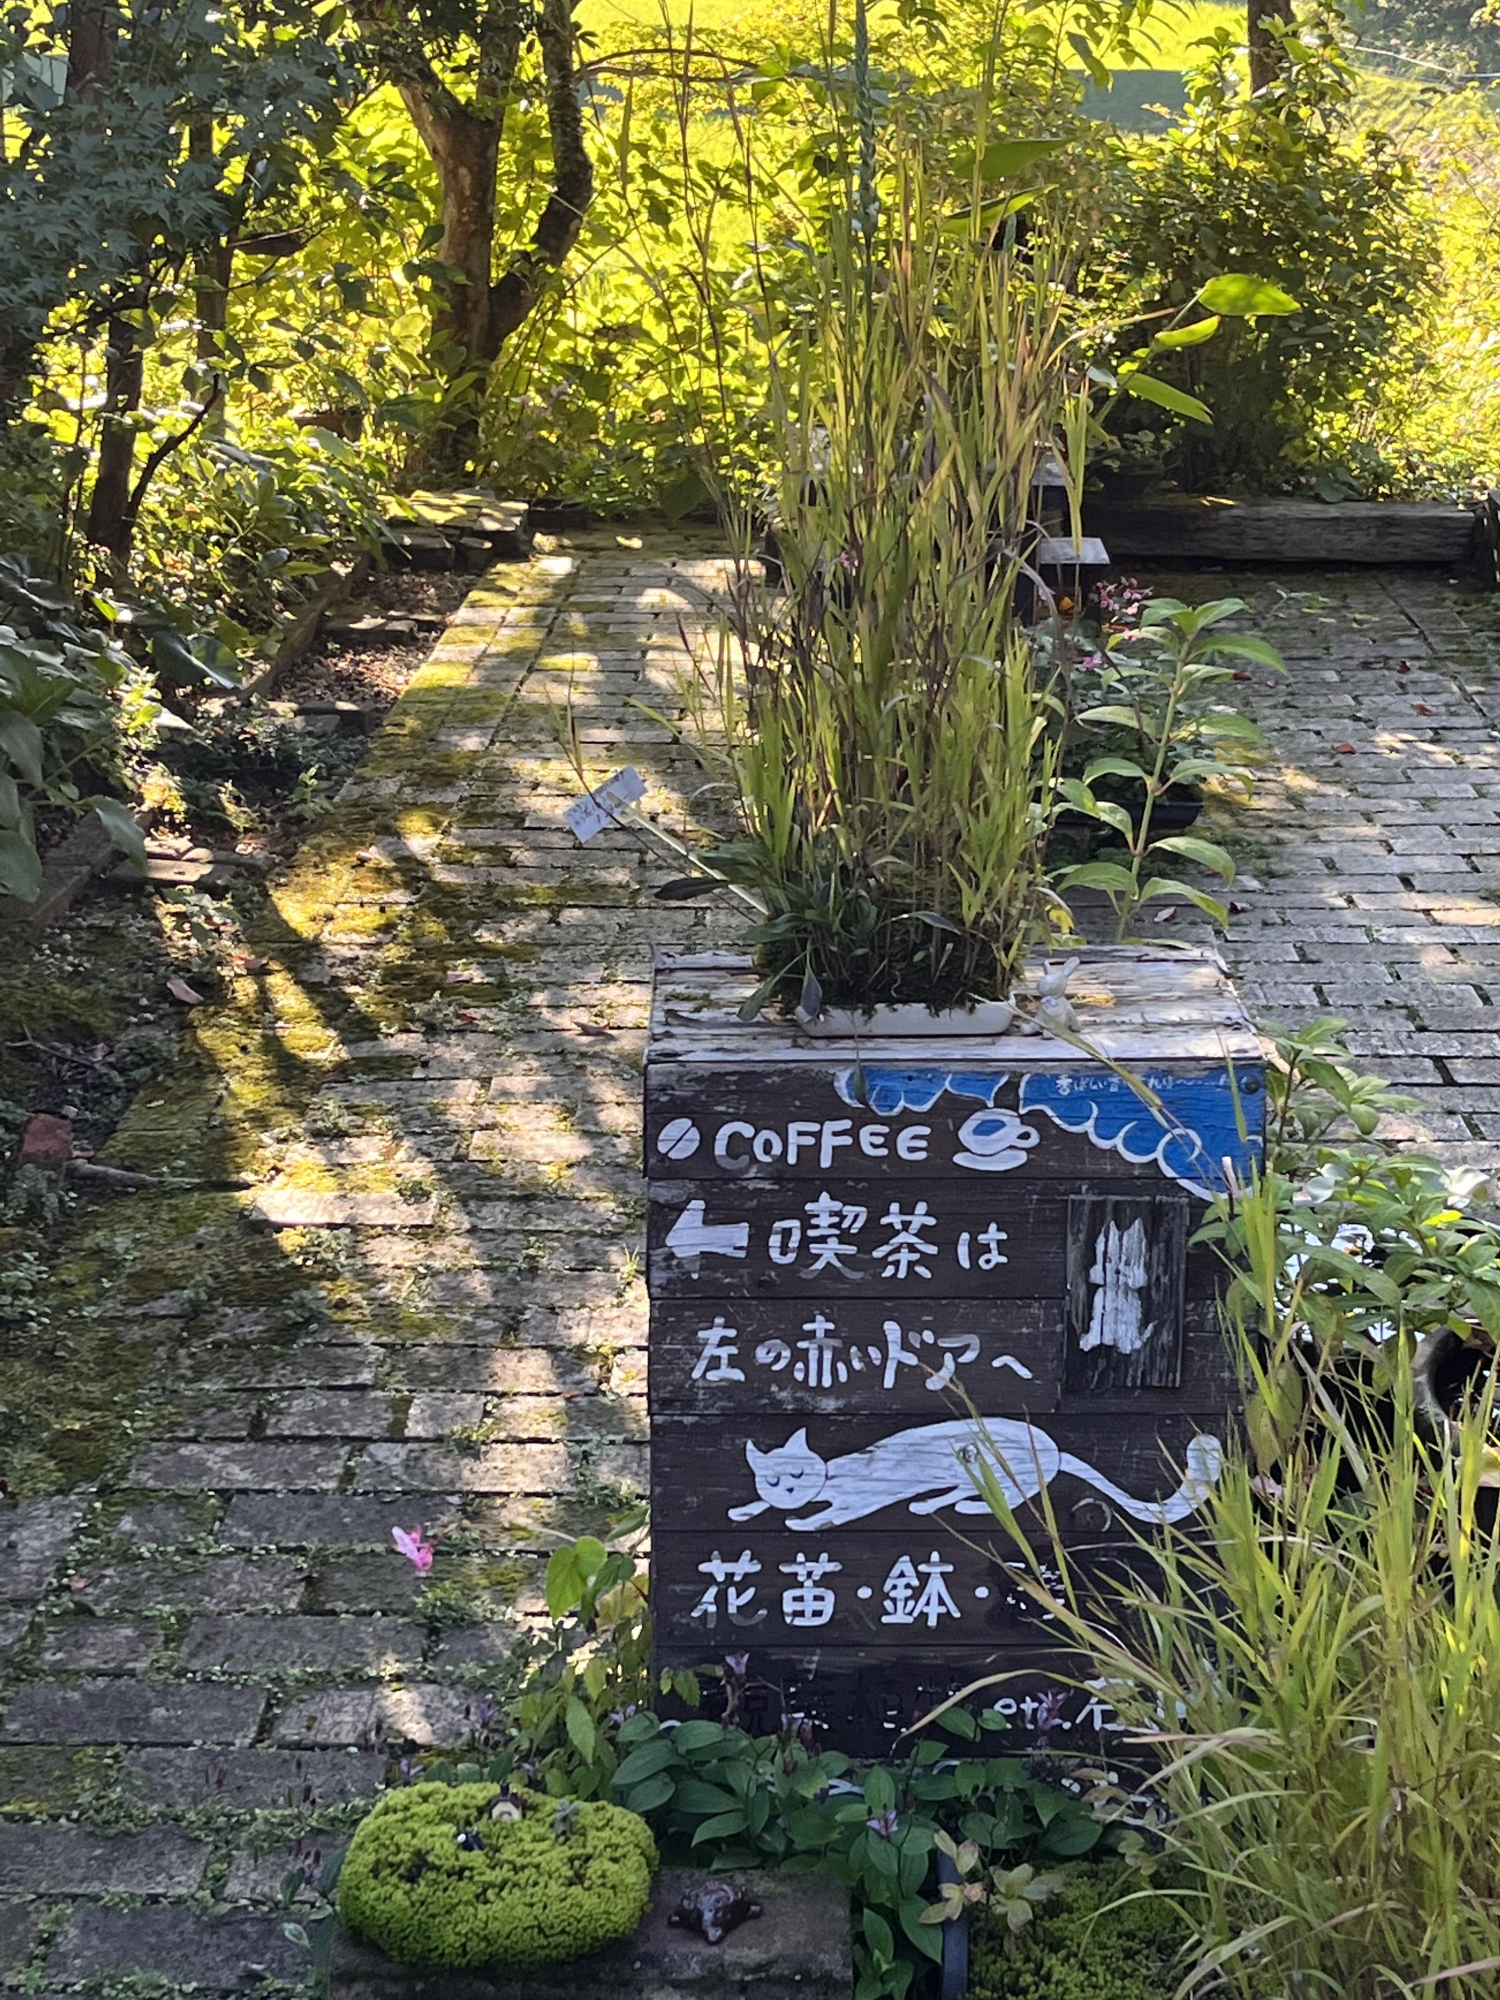 香ばしい香
COFFEE
喫茶は
左の赤いドアへ
花苗・鉢・
etc.